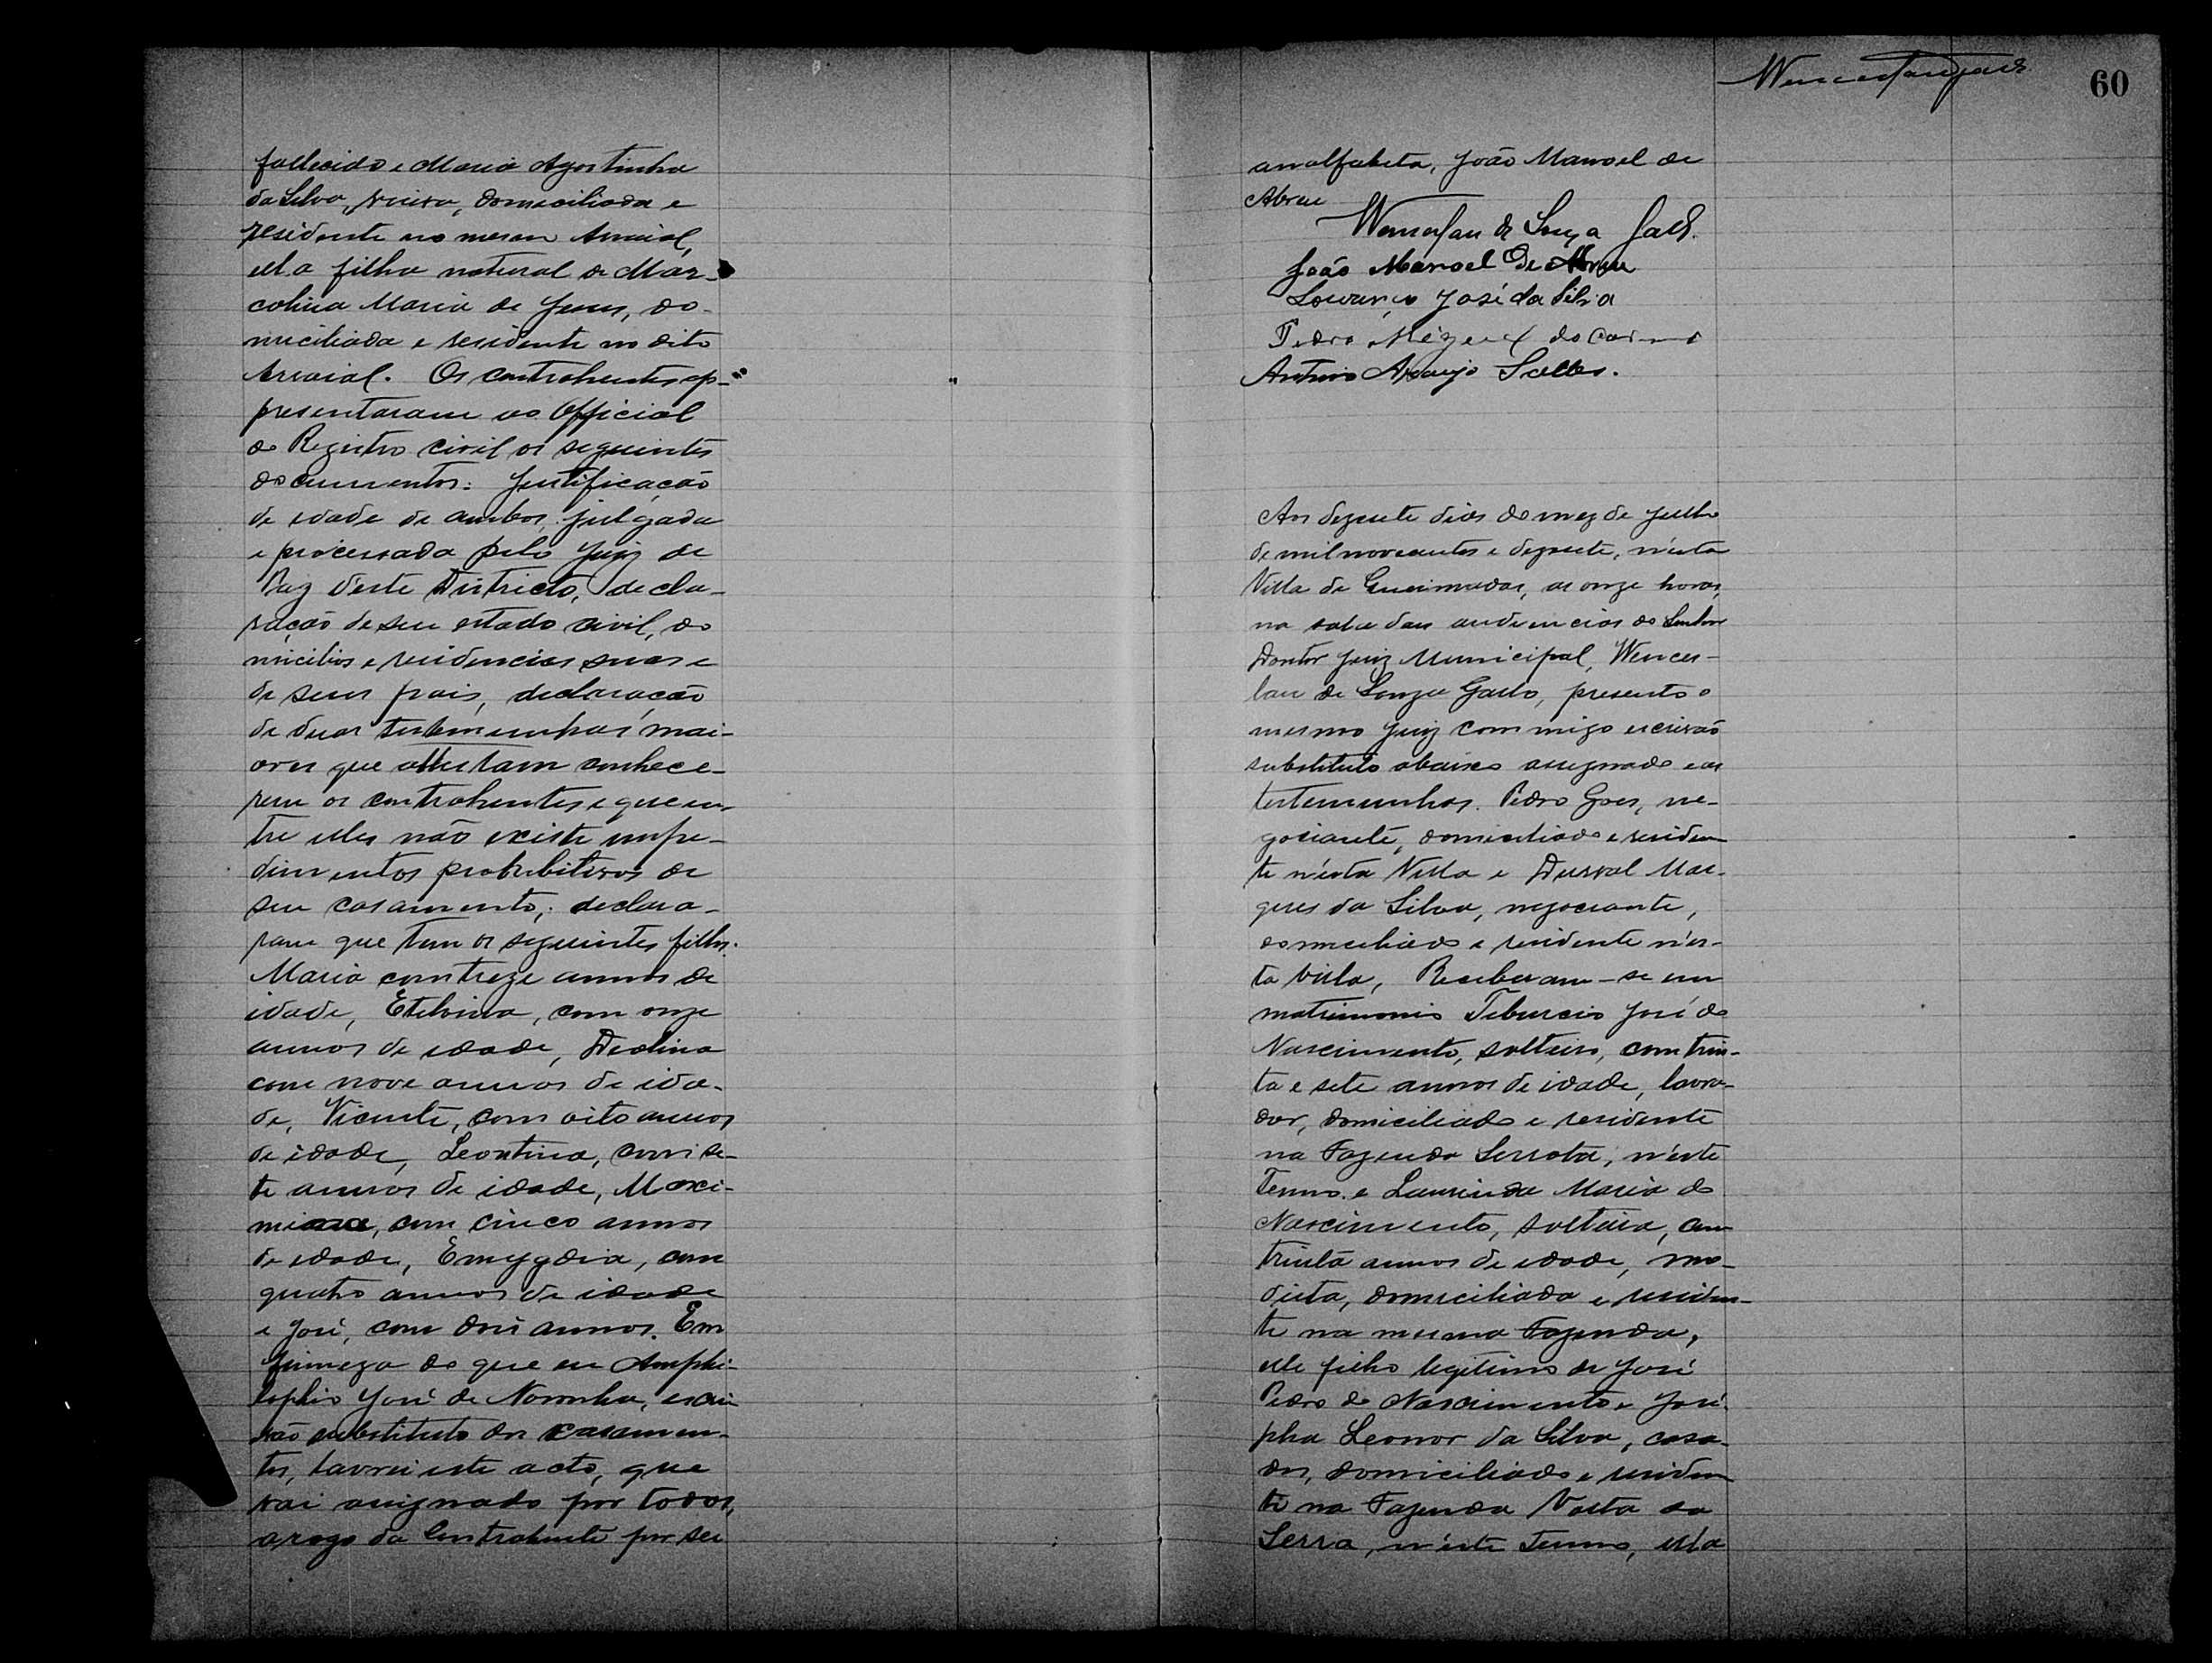 fallecido e Maria Agostinha
da Silva, viuva, domiciliada e
residente no mesmo Arraial,
ella filha natural de Mar-
colina Maria de Jesus, do-
miciliada e residente no dito
Arraial. Os contrahentes ap-
presentaram ao Official
do Registro civil os seguintes
documentos: Justificação
de edade de ambos, julgada
e processada pelo Juiz de
Paz d'este Districto, decla-
ração de seu estado civil, do
micilios e residencias suas e
de seus pais, declaração
de duas testemunhas mai-
ores que attestam conhece-
rem os contrahentes e que en-
tre elles não existe impe-
dimentos prohibitivos de
seu casamento; declara-
ram que tem os seguintes filhos:
Maria com treze annos de
idade, Etelvina, com onze
annos de edade, Deolina
com nove annos de ida-
de, Vicente, com oito annos
de idade, Leontina, com se-
te annos de idade, Maxi-
miana, com cinco annos
de edade, Emygdia, com
quatro annos de idade
e José, com dois annos. Em
firmeza do que eu Amphi-
lophio José de Noronha, escri
vão substituto dos casamen-
tos, lavrei este acto, que
vai assignado por todos,
a rogo da Contrahente por ser
Wenceslau Gallo
60
analfabeta, João Manoel de
Abreu
Wenceslau de Souza Gallo.
João Manoel De Abreu
Lourenço José da Silva
Pedro Miguel do Carmo
Antonio Araujo Salles.
Aos dezesete dias do mez de Julho
de mil novecentos e dezesete, n'esta
Villa de Queimadas, as onze horas,
na sala das audiencias do Senhor
Doutor Juiz Municipal, Wences-
lau de Souza Gallo, presente o
mesmo Juiz commigo escrivão
substituto abaixo assignado e as
testemunhas. Pedro Goes, ne-
gociante, domiciliado e residen
te n'esta Villa e Durval Mar-
ques da Silva, negociante,
domiciliado e residente n'es-
ta Villa, Receberam-se em
matrimonio Tiburcio José do
Nascimento, solteiro, com trin-
ta e sete annos de idade, lavra-
dor, domiciliado e residente
na Fazenda Serrota, n'este
Termo e Laurinda Maria do
Nascimento, solteira, com
trinta annos de edade, mo-
dista, domiciliada e residen-
te na mesma Fazenda,
elle filho legitimo de José
Pedro do Nascimento e José-
pha Leonor da Silva, casa-
dos, domiciliado e residen
te na Fazenda Volta da
Serra, n'este Termo, ella